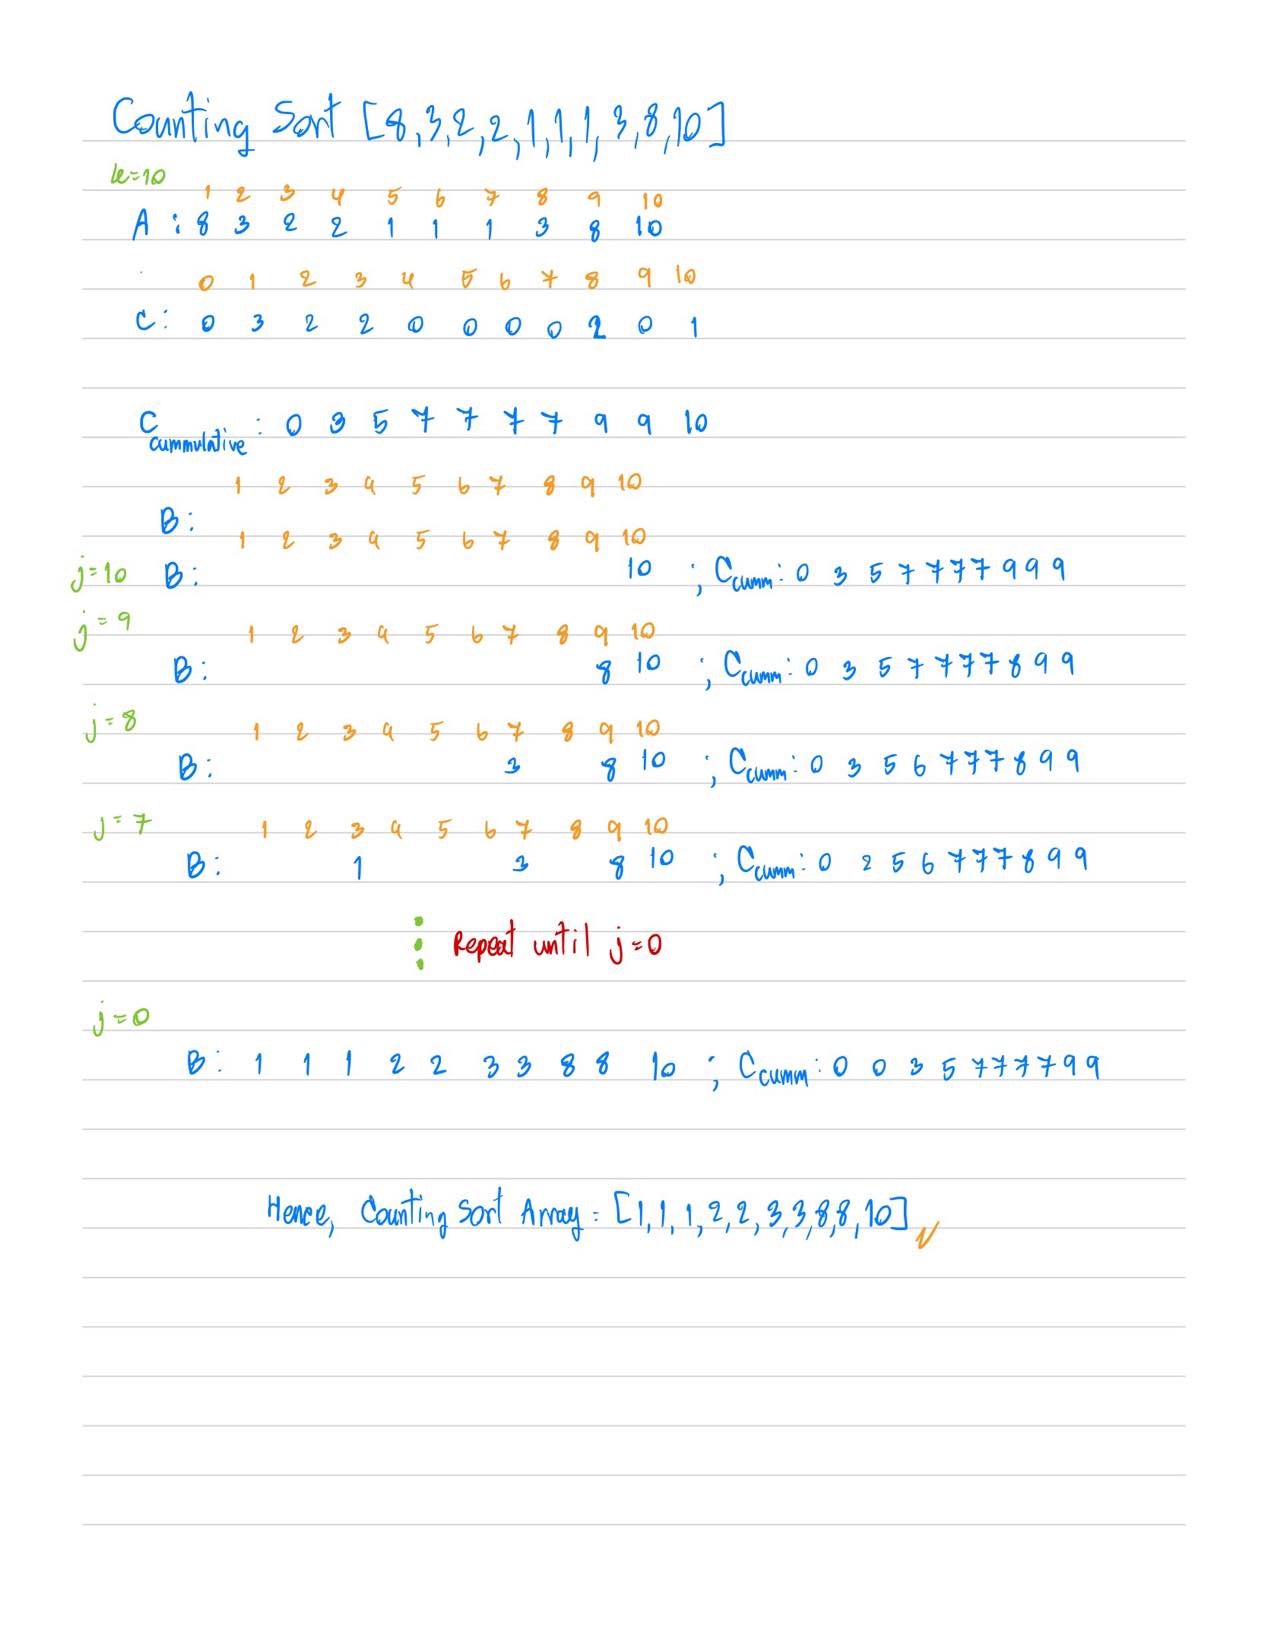 Counting Sort [8,3,2,2,1,1,1,3,8,10]
k=10
1 2 3 4 5 6 7 8 9 10
A : 8 3 2 2 1 1 1 3 8 10
0 1 2 3 4 5 6 7 8 9 10
C : 0 3 2 2 0 0 0 0 2 0 1
C cummulative : 0 3 5 7 7 7 7 9 9 10
1 2 3 4 5 6 7 8 9 10
B :
1 2 3 4 5 6 7 8 9 10
j=10 B : 10 ; C cumm : 0 3 5 7 7 7 7 9 9 9
j=9 1 2 3 4 5 6 7 8 9 10
B : 8 10 ; C cumm : 0 3 5 7 7 7 7 8 9 9
j=8 1 2 3 4 5 6 7 8 9 10
B : 3 8 10 ; C cumm : 0 3 5 6 7 7 7 8 9 9
j=7 1 2 3 4 5 6 7 8 9 10
B : 1 3 8 10 ; C cumm : 0 2 5 6 7 7 7 8 9 9
Repeat until j=0
j=0
B : 1 1 1 2 2 3 3 8 8 10 ; C cumm : 0 0 3 5 7 7 7 7 9 9
Hence, Counting Sort Array = [1,1,1,2,2,3,3,8,8,10]